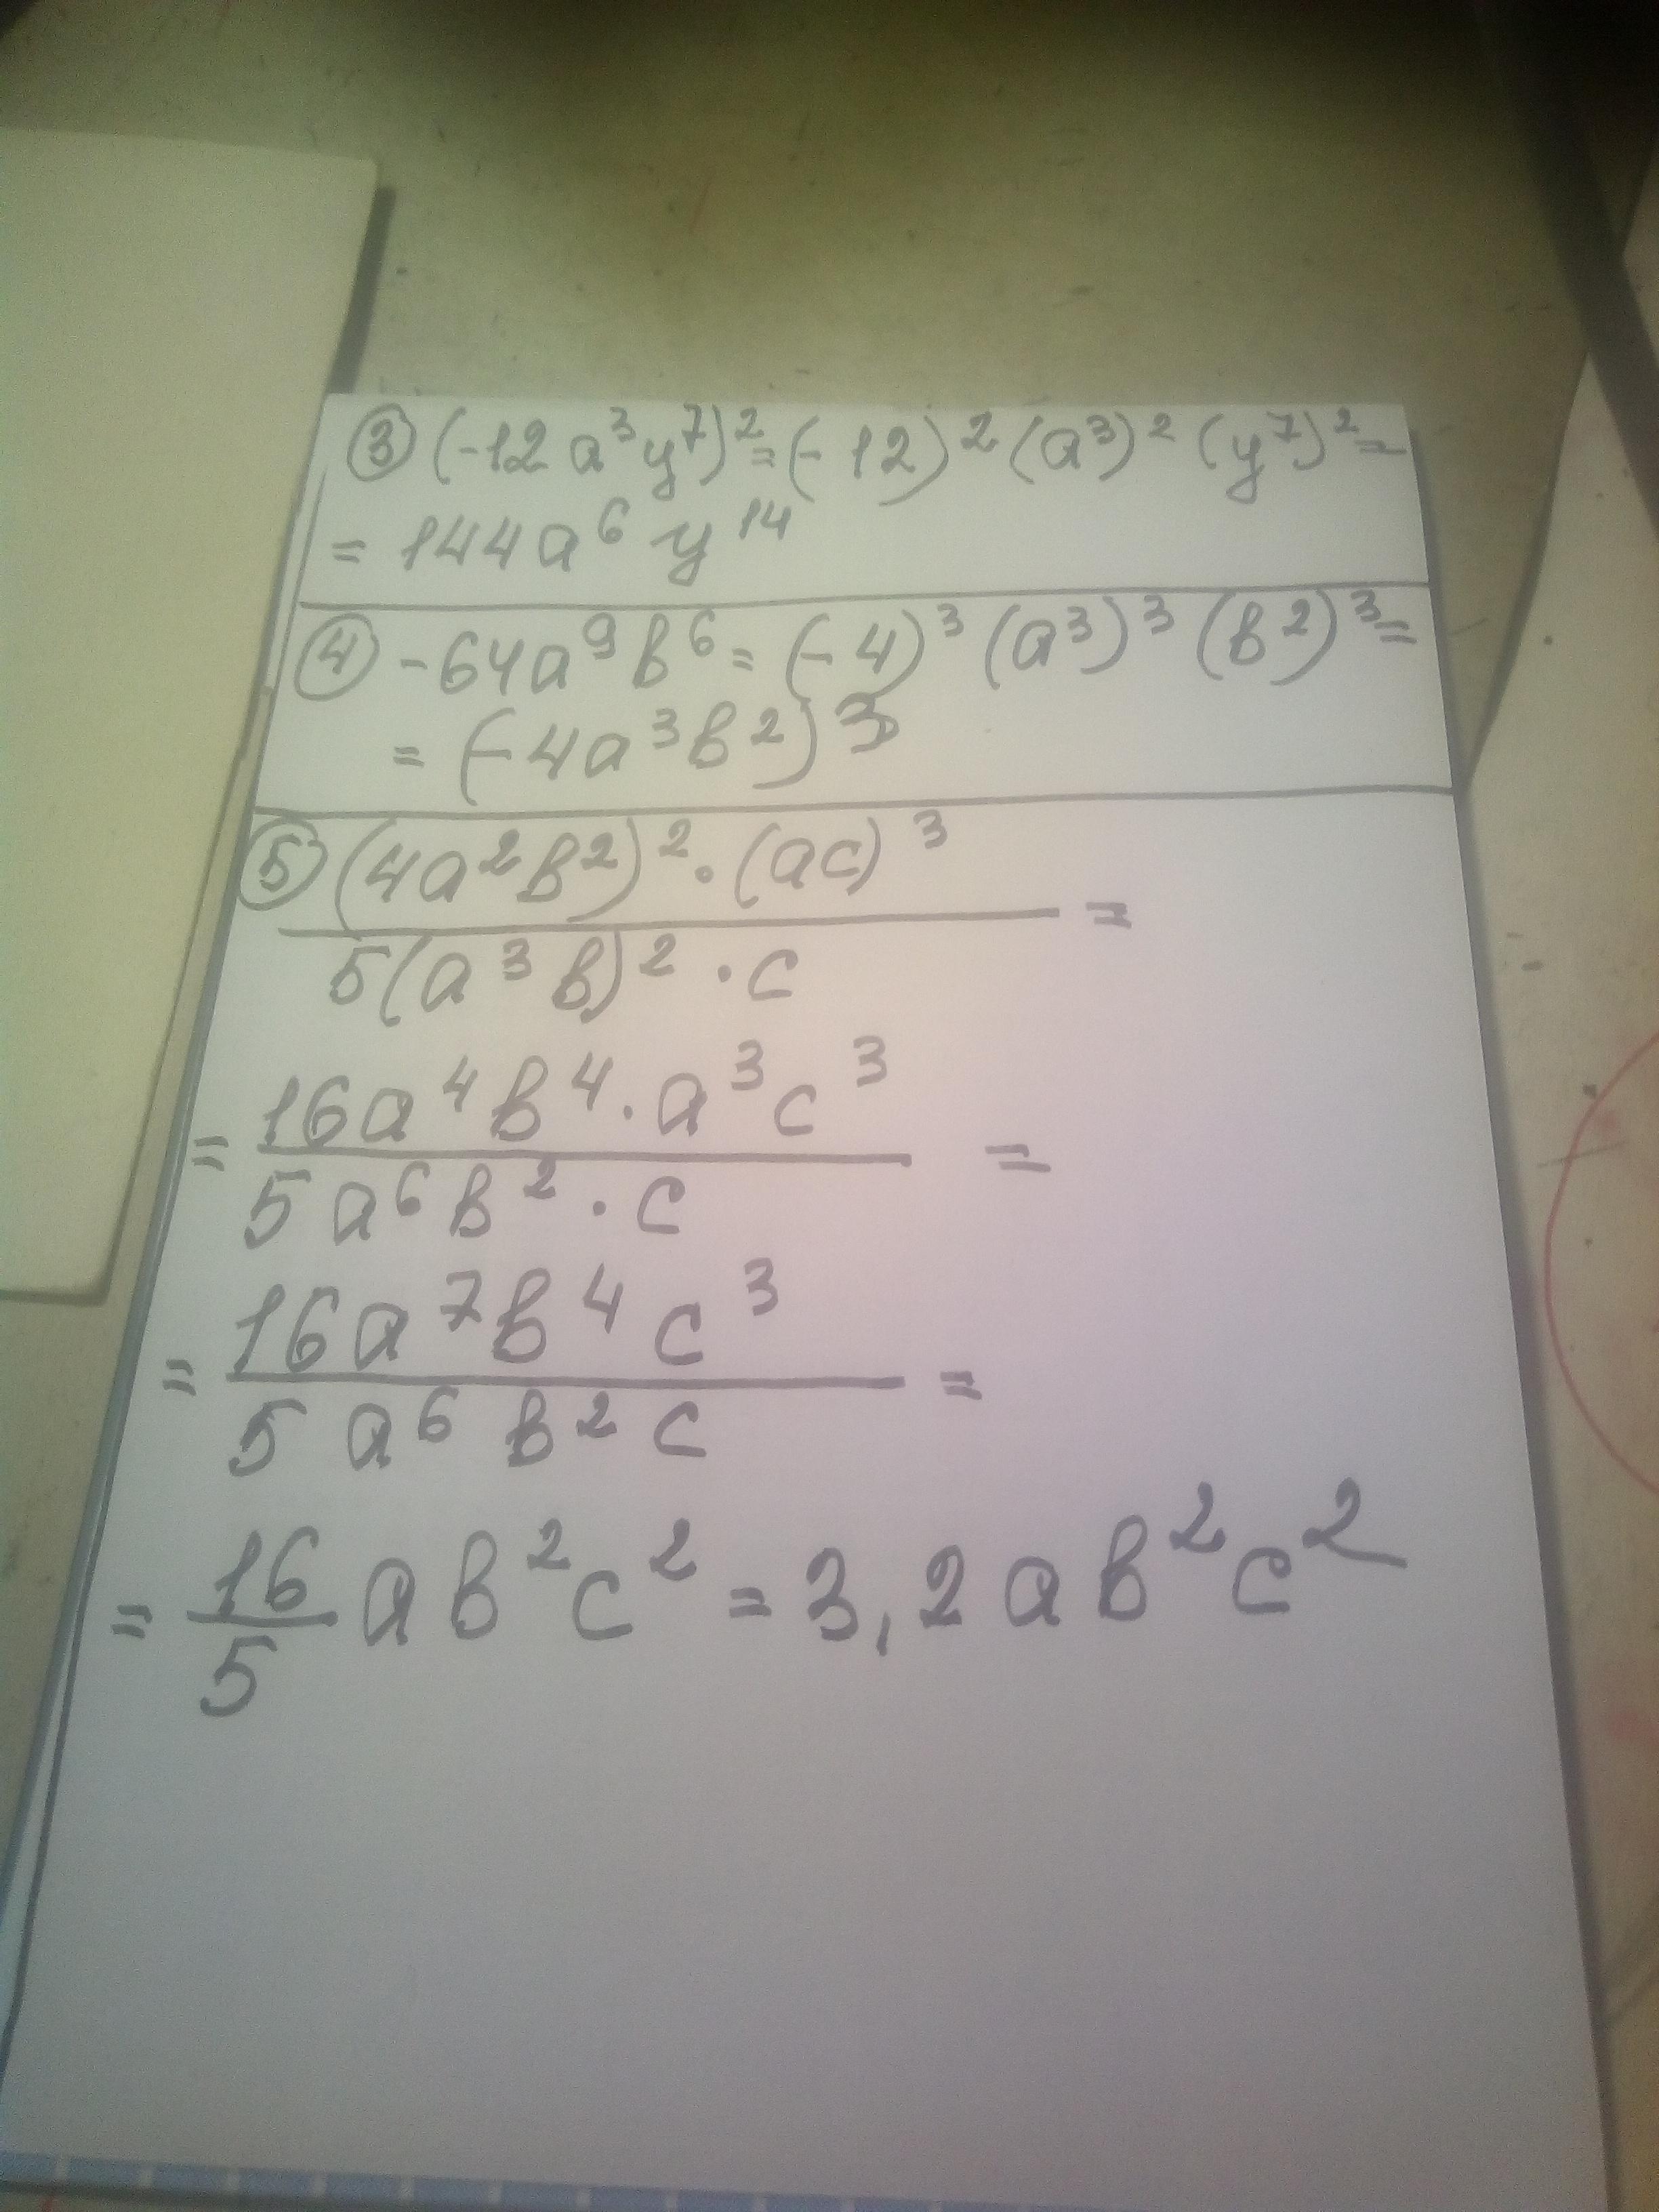 ③ (-12a³y⁷)² = (-12)² (a³)² (y⁷)² =
= 144a⁶y¹⁴
④ -64a⁹b⁶ = (-4)³ (a³)³ (b²)³ =
= (-4a³b²)³
⑤ (4a²b²)² · (ac)³ =
5(a³b)² · c
= 16a⁴b⁴ · a³c³ =
5a⁶b² · c
= 16a⁷b⁴c³ =
5a⁶b²c
= 16/5 ab²c² = 3,2ab²c²